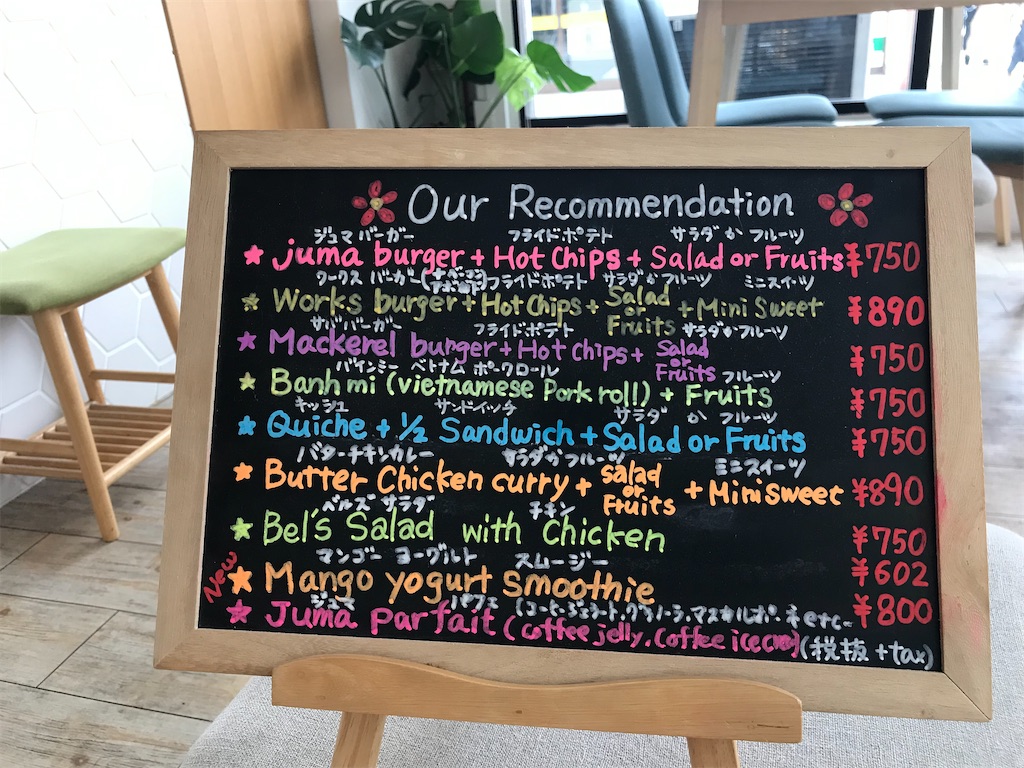 Our Recommendation
ジュマバーガー フライドポテト サラダかフルーツ
juma burger + Hot Chips + Salad or Fruits ¥750
ワークス バーガー フライドポテト サラダかフルーツ ミニスイーツ
Works burger + Hot Chips + Salad or Fruits + Mini Sweet ¥890
サババーガー フライドポテト サラダかフルーツ
Mackerel burger + Hot chips + Salad or Fruits ¥750
バインミー ベトナム ポークロール フルーツ
Banh mi (vietnamese Pork roll) + Fruits ¥750
キッシュ サンドイッチ サラダ か フルーツ
Quiche + 1/2 Sandwich + Salad or Fruits ¥750
バターチキンカレー サラダかフルーツ ミニスイーツ
Butter Chicken curry + salad or Fruits + Mini Sweet ¥890
ベルズ サラダ チキン
Bel's Salad with Chicken ¥750
マンゴー ヨーグルト スムージー
New Mango yogurt Smoothie ¥602
ジュマ パフェ etc.
Juma Parfait (coffee jelly, coffee ice ¥800
(税抜 + tax)